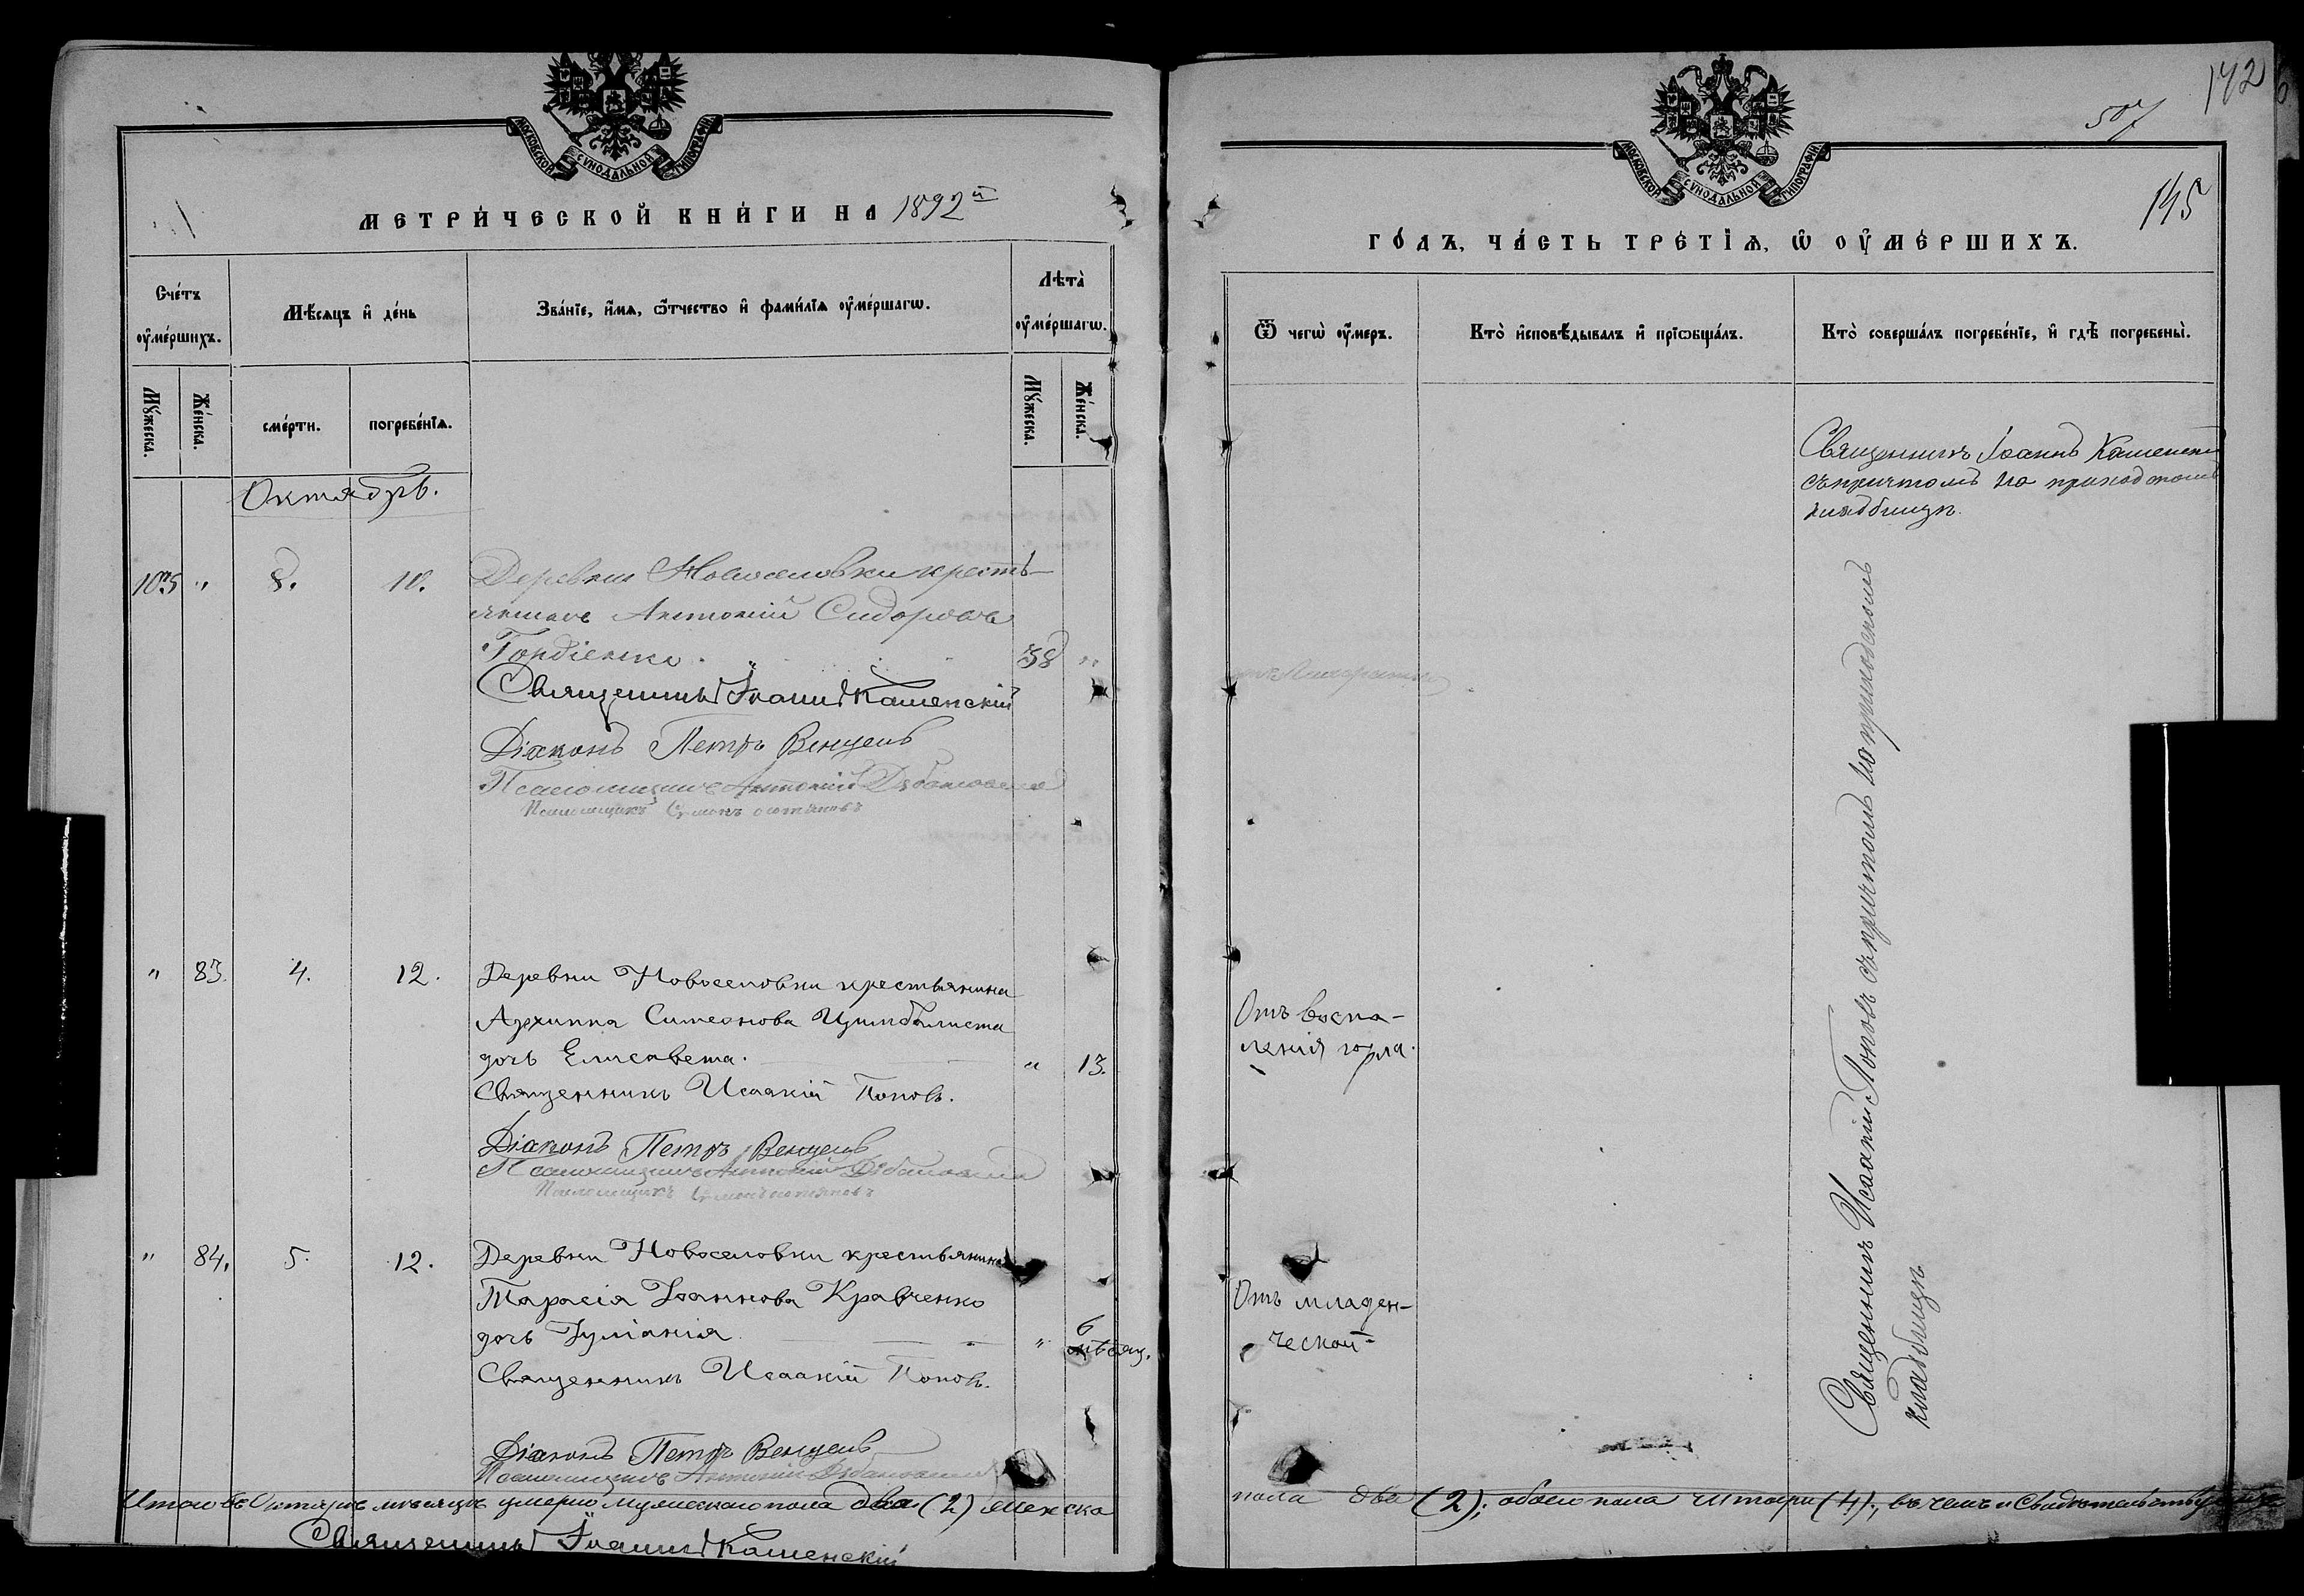 МОСКОВСКОЙ СѴНОДАЛЬНОЙ ТИПОГРАФІИ
МЕТРИ́ЧЕСКОЙ КНИ́ГИ НА 1892й
Сче́тъ оу҆ме́ршихъ.
Мѣ́сяцъ и҆ де́нь
Зва́нїе, и҆́мѧ, ѻ҆́тчество и҆ фами́лїѧ оу҆ме́ршагѡ.
Лѣта̀ оу҆ме́ршагѡ.
Мꙋ́жеска.
Же́нска.
сме́рти.
погребе́нїѧ.
Мꙋ́жеска.
Же́нска.
Октябрь.
105 " 8. 10. Деревни Новоселовки кресть-
янинъ Антоній Сидоровъ
Гордіенко. 58 "
Священникъ Іоаннъ Каменскій
Діаконъ Петръ Венцель
Псаломщикъ Антоній
Псаломщикъ
" 83. 4. 12. Деревни Новоселовки крестьянина
Архиппа Симеонова Цимбалиста
дочь Елисавета. " 13.
Священникъ Исаакій Поповъ.
Діаконъ Петръ Венцель
Псаломщикъ Антоній
Псаломщикъ
" 84. 5. 12. Деревни Новоселовки крестьянина
Тарасія Іоаннова Кравченко
дочь Іуліанія. " 6 мѣсяц.
Священникъ Исаакій Поповъ.
Діаконъ Петръ Венцель
Псаломщикъ Антоній
Итого въ Октябрѣ мѣсяцѣ умерло мужескаго пола два (2) женска
Священникъ Іоаннъ Каменскій
142
507
145
МОСКОВСКОЙ СѴНОДАЛЬНОЙ ТИПОГРАФІИ
ГО́ДЪ, ЧА́СТЬ ТРЕ́ТЇѦ, Ѡ҆ ОУ҆МЕ́РШИХЪ.
Ѿ чегѡ̀ оу҆́меръ.
Кто̀ и҆сповѣ́дывалъ и҆ прїѡбща́лъ.
Кто̀ соверша́лъ погребе́нїе, и҆ гдѣ̀ погребены̀.
Священникъ Іоаннъ Каменскі
съ причтомъ на приходскомъ
кладбищѣ.
Отъ воспа-
ленія горла.
Отъ младен-
ческой
Священникъ Исаакій Поповъ съ причтомъ на приходскомъ
кладбищѣ
пола два (2); обоего пола четыре (4), въ чемъ и свидѣтельствуемъ